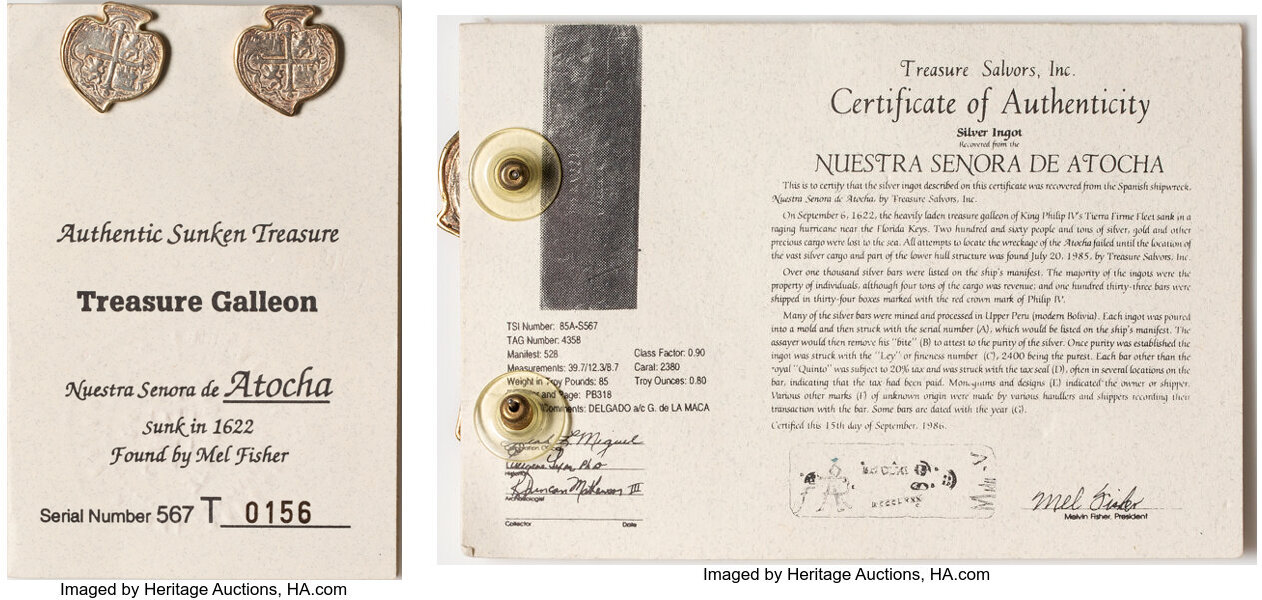 Authentic Sunken Treasure
Treasure Galleon
Nuestra Senora de Atocha
Sunk in 1622
Found by Mel Fisher
Serial Number 567 T 0156
Imaged by Heritage Auctions, HA.com
Treasure Salvors, Inc.
Certificate of Authenticity
Silver Ingot
Recovered from the
NUESTRA SENORA DE ATOCHA
This is to certify that the silver ingot described on this certificate was recovered from the Spanish shipwreck,
Nuestra Senora de Atocha, by Treasure Salvors, Inc.
On September 6, 1622, the heavily laden treasure galleon of King Philip IV's Tierra Firme Fleet sank in a
raging hurricane near the Florida Keys. Two hundred and sixty people and tons of silver, gold and other
precious cargo were lost to the sea. All attempts to locate the wreckage of the Atocha failed until the location of
the vast silver cargo and part of the lower hull structure was found July 20, 1985, by Treasure Salvors, Inc.
Over one thousand silver bars were listed on the ship's manifest. The majority of the ingots were the
property of individuals, although four tons of the cargo was revenue; and one hundred thirty-three bars were
shipped in thirty-four boxes marked with the red crown mark of Philip IV.
Many of the silver bars were mined and processed in Upper Peru (modern Bolivia). Each ingot was poured
into a mold and then struck with the serial number (A), which would be listed on the ship's manifest. The
assayer would then remove his "bite" (B) to attest to the purity of the silver. Once purity was established the
ingot was struck with the "Ley" or fineness number (C), 2400 being the purest. Each bar other than the
royal "Quinto" was subject to 20% tax and was struck with the tax seal (D), often in several locations on the
bar, indicating that the tax had been paid. Monograms and designs (E) indicated the owner or shipper.
Various other marks (F) of unknown origin were made by various handlers and shippers recording their
transaction with the bar. Some bars are dated with the year (G).
Certified this 15th day of September, 1986.
TSI Number: 85A-S567
TAG Number: 4358
Manifest: 528 Class Factor: 0.90
Measurements: 39.7/12.3/8.7 Carat: 2380
Weight in Troy Pounds: 85 Troy Ounces: 0.80
and Page: PB318
DELGADO a/c G. de LA MACA
Miguel
Ph.D
Historian
R. Duncan Mathewson III
Archaeologist
Collector Date
Mel Fisher
Melvin Fisher, President
Imaged by Heritage Auctions, HA.com